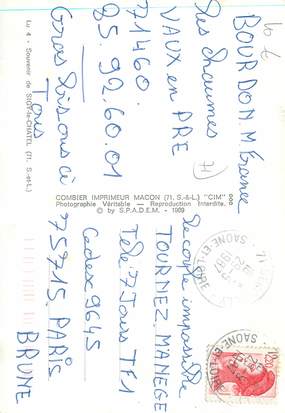 BOURDON M France
les chaumes
VAUX en PRE
71460.
85.92.60.01
Gros bisous à
Tous
le coupe impossible
TOURNEZ MANEGE
Télé 7 Jours TF1
Cedex 9645
75715 PARIS
BRUNE
Lu 4 - Souvenir de SIGY-le-CHATEL (71. S.-et-L.)
COMBIER IMPRIMEUR MACON (71. S.-&-L.) "CIM"
Photographie Véritable — Reproduction Interdite.
© by S.P.A.D.E.M. - 1989
SAONE-ET-LOIRE
SAONE-ET-LOIRE